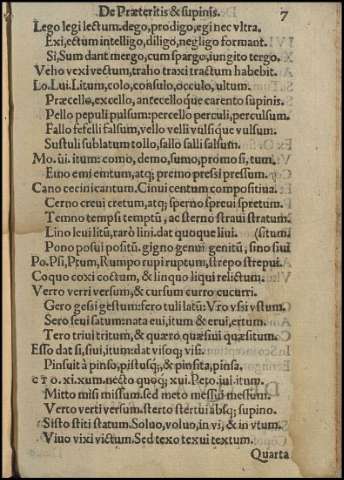 De Præteritis & supinis. 7
Lego legi lectum. dego, prodigo, egi nec vltra.
Exi, ectum intelligo, diligo, negligo formant.
Si, Sum dant mergo, cum spargo, iungito tergo.
Veho vexi vectum, traho traxi tractum habebit.
Lo. Lui. Litum, colo, consulo, occulo, ultum.
Præcello, excello, antecello que carento supinis.
Pello pepuli pulsum: percello perculi, perculsum.
Fallo fefelli falsum, vello velli vulsique vulsum.
Sustuli sublatum tollo, sallo salli salsum.
Mo. üi. itum: como, demo, sumo, promo si, tum.
Emo emi emtum, atq; premo pressi pressum.
Cano cecini cantum. Cinui centum compositiua.
Cerno creui cretum, atq; sperno spreui spretum.
Temno tempsi temptū, ac sterno straui stratum.
Lino leui litū, rarò lini. dat quoque liui. (situm.
Pono posui positū. gigno genui genitū, sino siui
Po. Psi, Ptum, Rumpo rupi ruptum, strepo strepui.
Coquo coxi coctum, & linquo liqui relictum.
Verro verri versum, & cursum curro cucurri.
Gero gessi gestum: fero tuli latū: Vro vssi vstum.
Sero seui satum: nata eui, itum & erui, ertum.
Tero triui tritum, & quæro quæsiui quæsitum.
Esso dat si, siui, itum: dat visoq; visi.
Pinsuit à pinso, pistusq;, & pinsita, pinsa.
CTO. xi. xum. necto quoq; xui. Peto. iui. itum.
Mitto misi missum. sed meto messui messum.
Verto verti versum. sterto stertui absq; supino.
Sisto stiti statum. Soluo, voluo, in vi, & in vtum.
Viuo vixi victum. Sed texo texui textum.
Quarta